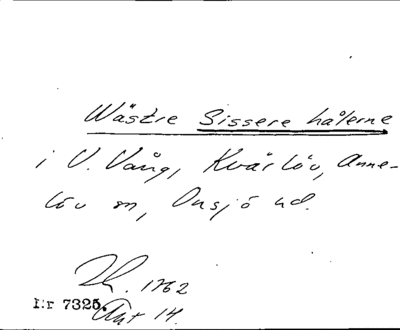 Wästre Sissere hålerne
i V. Vång, Kvärlöv, Anne-
löv sn, Onsjö hd.
1762
Nr 7325. Akt 14.